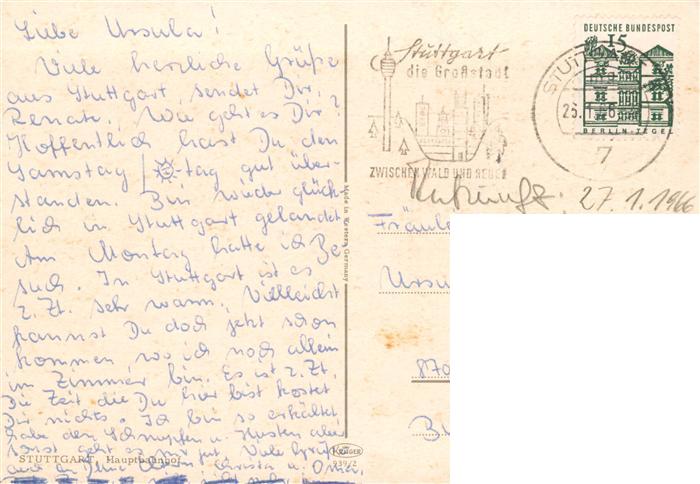 Liebe Ursula!
Viele herzliche Grüße
aus Stuttgart, sendet Dir,
Renate. Wie geht es Dir?
Hoffentlich hast Du den
Samstag/☀-tag gut über-
standen. Bin wieder glück-
lich in Stuttgart gelandet
Am Montag hatte ich Be
such. In Stuttgart ist es
z. Zt. sehr warm. Vielleicht
kannst Du doch jetzt schon
kommen, wo ich noch allein
im Zimmer bin. Es ist z. Zt.
Die Zeit die Du hier bist kostet
Dir nichts. Ich bin so erkältet
habe den Schnupfen u. Husten aber
sonst geht es mir gut. Viele Grüße
auch an Deine Eltern, Christa u. Oma.
STUTTGART, Hauptbahnhof
Made in Western Germany
KRÜGER
939/2
Stuttgart
die Großstadt
ZWISCHEN WALD UND REBEN
DEUTSCHE BUNDESPOST
15
BERLIN-TEGEL
STUTT
7
Ankunft: 27.1.1966
Fräule
Ursu
870